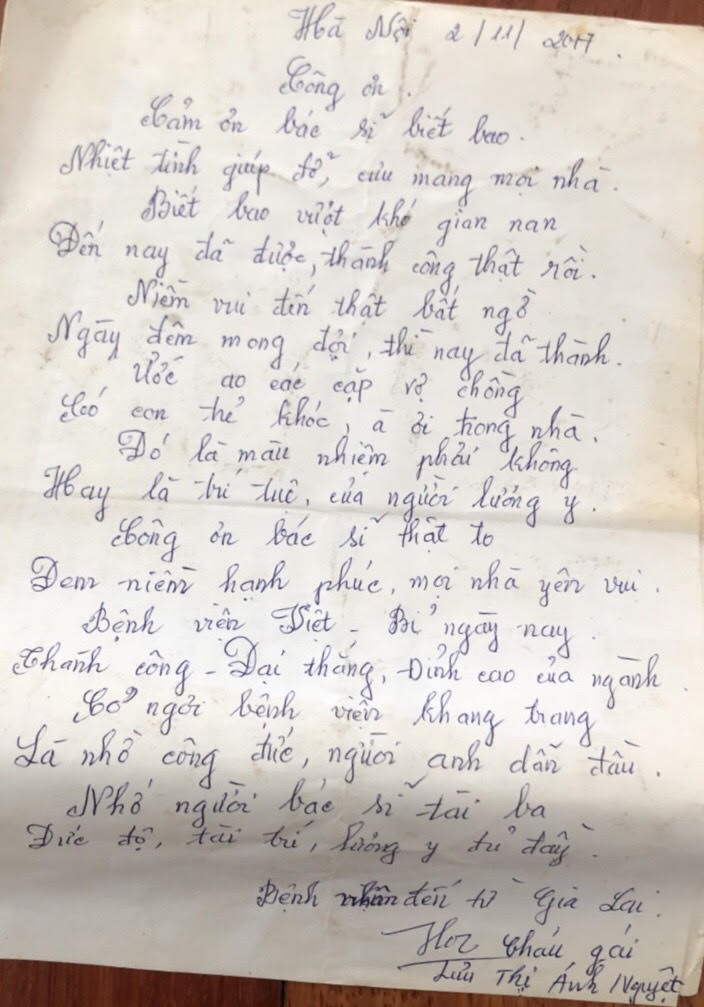 Hà Nội 2/11/2017.
Công ơn.
Cảm ơn bác sĩ biết bao.
Nhiệt tình giúp đỡ, cưu mang mọi nhà.
Biết bao vượt khó gian nan
Đến nay đã được, thành công thật rồi.
Niềm vui đến thật bất ngờ
Ngày đêm mong đợi, thì nay đã thành.
Ước ao các cặp vợ chồng
Có con thẻ khóc, à ơi trong nhà.
Đó là màu nhiệm phải không
Hay là trí tuệ, của người lương y.
Công ơn bác sĩ thật to
Đem niềm hạnh phúc, mọi nhà yên vui.
Bệnh viện Việt - Bỉ ngày nay.
Thành công - Đại thắng, Đỉnh cao của ngành.
Cơ ngơi bệnh viện khang trang
Là nhờ công đức, người anh dẫn đầu.
Nhớ người bác sĩ tài ba
Đức độ, tài trí, lương y đủ đầy.
Bệnh nhân đến từ Gia Lai.
cháu gái
Lưu Thị Ánh Nguyệt